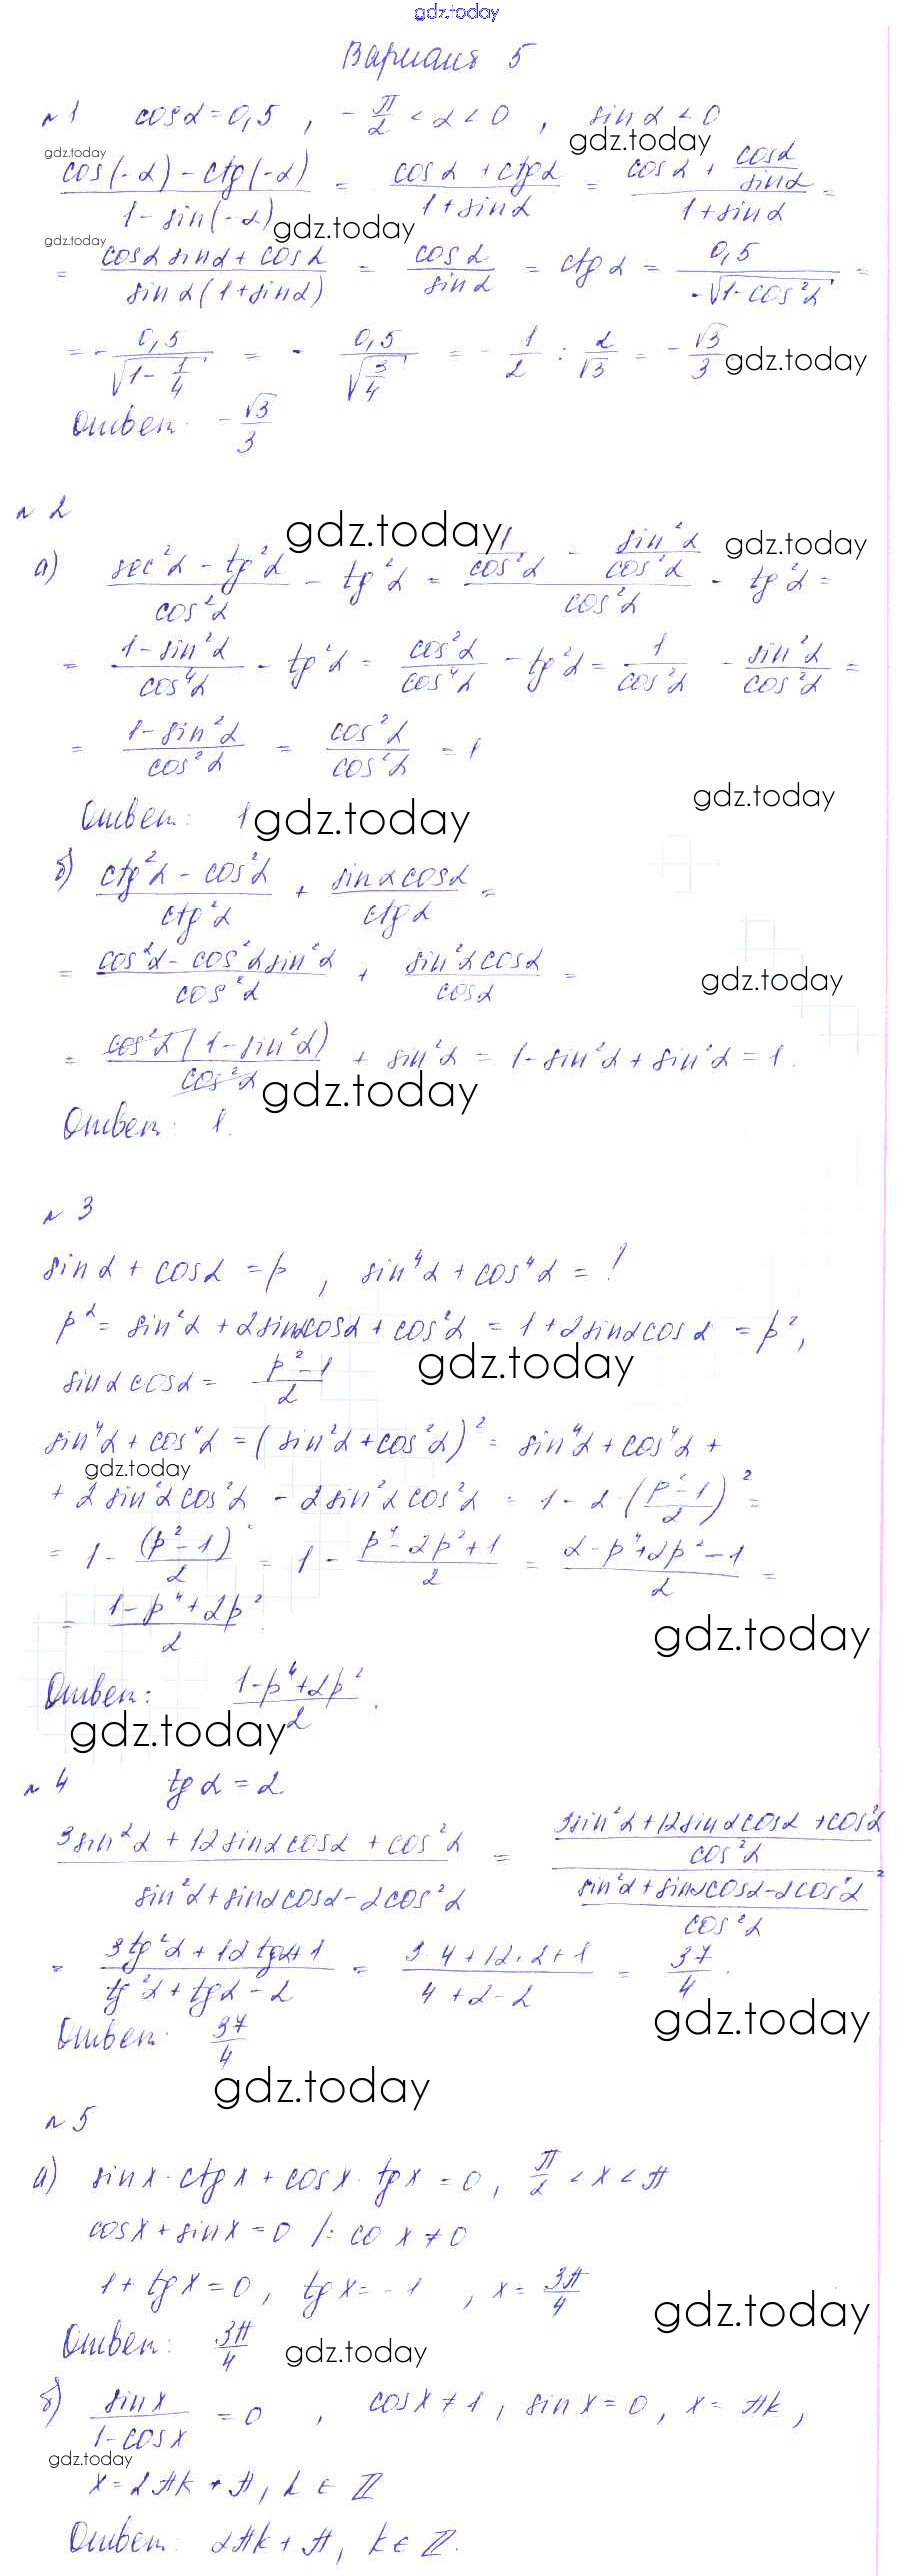 gdz.today
Вариант 5
№1 cosα = 0,5 , -π/2 < α < 0 , sinα < 0
gdz.today
gdz.today
(cos(-α) - ctg(-α))/(1 - sin(-α)) = (cosα + ctgα)/(1 + sinα) = (cosα + cosα/sinα)/(1 + sinα) =
gdz.today
gdz.today
= (cosα sinα + cosα)/(sinα(1 + sinα)) = cosα/sinα = ctgα = 0,5/(-√(1 - cos²α)) =
= - 0,5/√(1 - 1/4) = - 0,5/√(3/4) = - 1/2 : 2/√3 = - √3/3 .
gdz.today
Ответ: - √3/3
№ 2
gdz.today
gdz.today
а) (sec²α - tg²α)/cos²α - tg²α = (1/cos²α - sin²α/cos²α)/cos²α - tg²α =
= (1 - sin²α)/cos⁴α - tg²α = cos²α/cos⁴α - tg²α = 1/cos²α - sin²α/cos²α =
= (1 - sin²α)/cos²α = cos²α/cos²α = 1
gdz.today
Ответ: 1
gdz.today
б) (ctg²α - cos²α)/ctg²α + sinαcosα/ctgα =
= (cos²α - cos²αsin²α)/cos²α + sin²αcosα/cosα =
gdz.today
= cos²α(1 - sin²α)/cos²α + sin²α = 1 - sin²α + sin²α = 1.
gdz.today
Ответ: 1.
№ 3
sinα + cosα = p , sin⁴α + cos⁴α = ?
p² = sin²α + 2sinαcosα + cos²α = 1 + 2sinαcosα = p²,
gdz.today
sinαcosα = (p² - 1)/2
sin⁴α + cos⁴α = (sin²α + cos²α)² = sin⁴α + cos⁴α +
gdz.today
+ 2sin²αcos²α - 2sin²αcos²α = 1 - 2·((p² - 1)/2)² =
= 1 - (p² - 1)²/2 = 1 - (p⁴ - 2p² + 1)/2 = (2 - p⁴ + 2p² - 1)/2 =
= (1 - p⁴ + 2p²)/2 .
gdz.today
Ответ: (1 - p⁴ + 2p²)/2 .
gdz.today
№ 4 tgα = 2
(3sin²α + 12sinαcosα + cos²α)/(sin²α + sinαcosα - 2cos²α) = ((3sin²α + 12sinαcosα + cos²α)/cos²α)/((sin²α + sinαcosα - 2cos²α)/cos²α) =
= (3tg²α + 12tgα + 1)/(tg²α + tgα - 2) = (3·4 + 12·2 + 1)/(4 + 2 - 2) = 37/4 .
gdz.today
Ответ: 37/4
gdz.today
№ 5
а) sinx·ctgx + cosx·tgx = 0, π/2 < x < π
cosx + sinx = 0 /: co x ≠ 0
1 + tgx = 0, tgx = -1 , x = 3π/4
gdz.today
Ответ: 3π/4
gdz.today
б) sinx/(1 - cosx) = 0 , cosx ≠ 1, sinx = 0, x = πk,
gdz.today
x = 2πk + π, k ∈ ℤ
Ответ: 2πk + π, k ∈ ℤ.